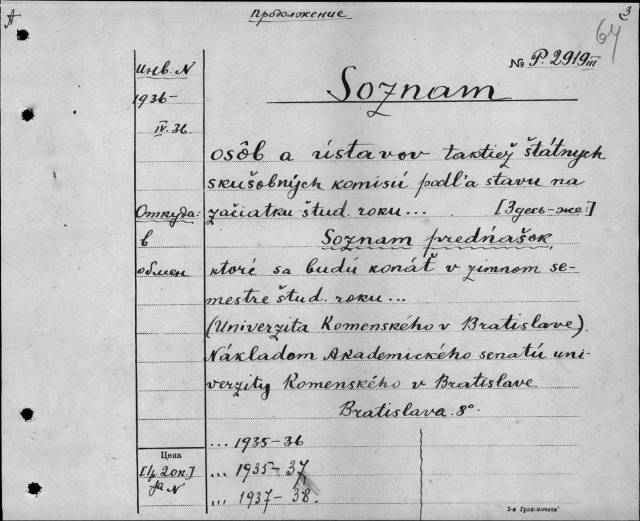 А
Продолжение
3
64
№ P. 2919 III
Инв. N
1936-
IV. 36.
Soznam
osôb a ústavov taktiež štátnych
skušobných komisií podľa stavu na
Откуда: začiatku štud. roku... [Здесь-же:]
в Soznam prednášok,
обмен ktoré sa budú konáť v zimnom se-
mestre štud. roku...
(Univerzita Komenského v Bratislave).
Nákladom Akademického senatú uni-
verzity Komenského v Bratislave
Bratislava. 8º.
... 1935-36
Цена
... 1935-37
за N
... 1937-38.
3-я Фабр.печати